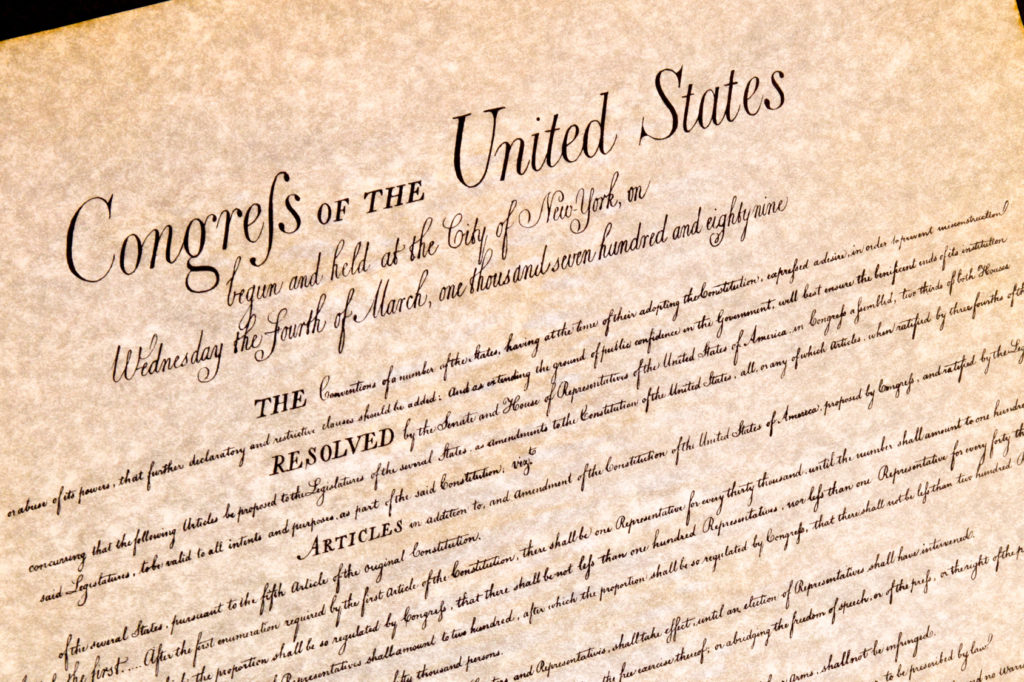 Congreſs OF THE United States
begun and held at the City of New-York, on
Wednesday the Fourth of March, one thousand seven hundred and eighty nine
THE Conventions of a number of the States, having at the time of their adopting the Constitution, expreſsed a desire, in order to prevent misconstruction
or abuse of its powers, that further declaratory and restrictive clauses should be added: And as extending the ground of public confidence in the Government, will best ensure the benificent ends of its institution
RESOLVED by the Senate and House of Representatives of the United States of America, in Congreſs aſsembled, two thirds of both Houses
concurring that the following Articles be proposed to the Legislatures of the several States, as amendments to the Constitution of the United States, all, or any of which Articles, when ratified by three fourths of the
said Legislatures, to be valid to all intents and purposes, as part of the said Constitution, vizt
ARTICLES in addition to, and amendment of the Constitution of the United States of America, proposed by Congreſs, and ratified by the
of the several States, pursuant to the fifth Article of the original Constitution.
the first.... After the first enumeration required by the first Article of the Constitution, there shall be one Representative for every thirty thousand, until the number shall amount to one
the proportion shall be so regulated by Congreſs, that there shall be not leſs than one hundred Representatives, nor leſs than one Representative for every forty
Representatives shall amount to two hundred, after which the proportion shall be so regulated by Congreſs, that there shall not be leſs than two hundred
thousand persons.
and Representatives, shall take effect, until an election of Representatives shall have intervened.
the free exercise thereof; or abridging the freedom of speech, or of the preſs, or the right of the
arms, shall not be infringed.
to be prescribed by law
and no